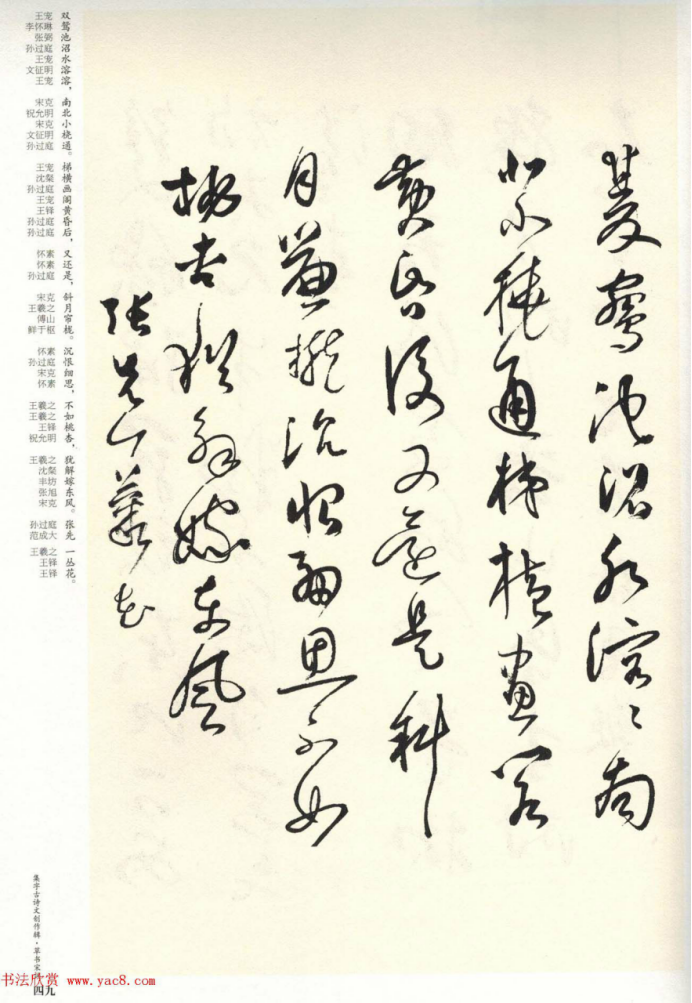 雙鴛池沼水溶溶南
北小橈通梯橫畫閣
黃昏後又還是斜
月簾櫳沉恨細思不如
桃杏猶解嫁東風
張先一叢花
双鸳池沼水溶溶，南北小桡通。梯横画阁黄昏后，又还是，斜月帘栊。沉恨细思，不如桃杏，犹解嫁东风。张先 一丛花。
王宠 李怀琳 张弼 孙过庭 王宠 文征明 王宠 宋克 祝允明 宋克 文征明 孙过庭 王宠 沈粲 孙过庭 王宠 王铎 孙过庭 孙过庭 怀素 怀素 孙过庭 宋克 王羲之 傅山 鲜于枢 怀素 孙过庭 宋克 怀素 王羲之 王羲之 王铎 祝允明 王羲之 沈粲 丰坊 张旭 宋克 孙过庭 范成大 王羲之 王铎 王铎
集字古诗文创作辑·草书宋词
四九
书法欣赏 www.yac8.com